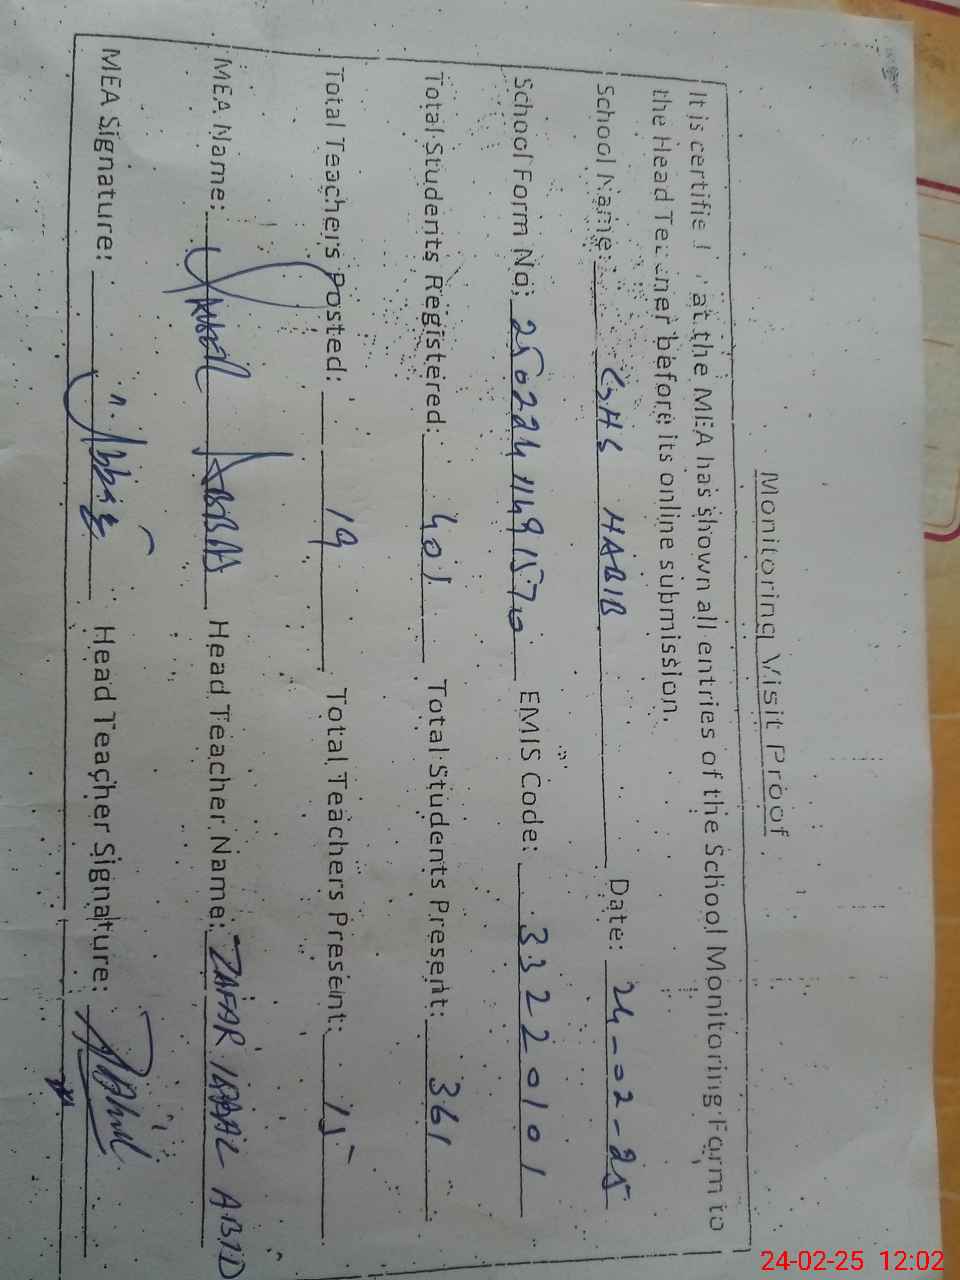 Monitoring Visit Proof
It is certifie at the MEA has shown all entries of the School Monitoring Form to
the Head Teacher before its online submission.
School Name: GHS HABIB Date: 24-02-25
School Form No: EMIS Code: 33220101
Total Students Registered: 401 Total Students Present: 361
Total Teachers Posted: 19 Total Teachers Present: 15
MEA Name: ABBAS Head Teacher Name: ZAFAR IQBAL ABID
MEA Signature: Head Teacher Signature:
24-02-25 12:02